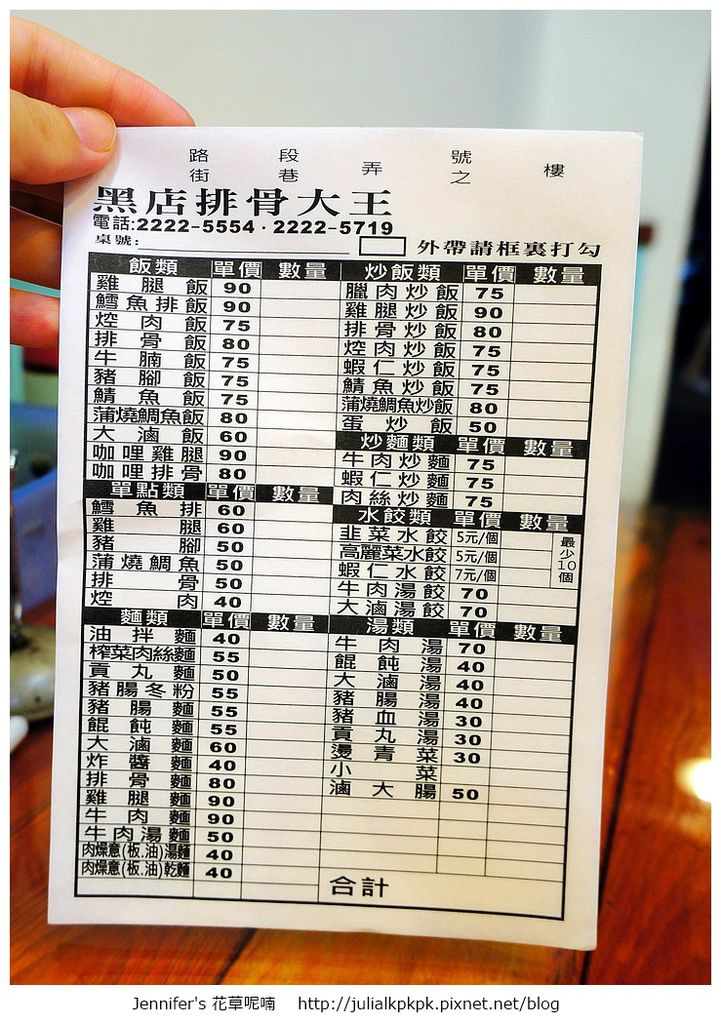 路 段 號 樓
街 巷 弄 之
黑店排骨大王
電話:2222-5554・2222-5719
桌號: 外帶請框裏打勾
飯類 單價 數量
雞腿飯 90
鱈魚排飯 90
焢肉飯 75
排骨飯 80
牛腩飯 75
豬腳飯 75
鯖魚飯 75
蒲燒鯛魚飯 80
大滷飯 60
咖哩雞腿 90
咖哩排骨 80
單點類 單價 數量
鱈魚排 60
雞腿 60
豬腳 50
蒲燒鯛魚 50
排骨 50
焢肉 40
麵類 單價 數量
油拌麵 40
榨菜肉絲麵 55
貢丸麵 50
豬腸冬粉 55
豬腸麵 55
餛飩麵 55
大滷麵 60
炸醬麵 40
排骨麵 80
雞腿麵 90
牛肉麵 90
牛肉湯麵 50
肉燥意(板.油)湯麵 40
肉燥意(板.油)乾麵 40
炒飯類 單價 數量
臘肉炒飯 75
雞腿炒飯 90
排骨炒飯 80
焢肉炒飯 75
蝦仁炒飯 75
鯖魚炒飯 75
蒲燒鯛魚炒飯 80
蛋炒飯 50
炒麵類 單價 數量
牛肉炒麵 75
蝦仁炒麵 75
肉絲炒麵 75
水餃類 單價 數量
韭菜水餃 5元/個
高麗菜水餃 5元/個
蝦仁水餃 7元/個
最少10個
牛肉湯餃 70
大滷湯餃 70
湯類 單價 數量
牛肉湯 70
餛飩湯 40
大滷湯 40
豬腸湯 40
豬血湯 30
貢丸湯 30
燙青菜 30
小菜
滷大腸 50
合計
Jennifer's 花草呢喃 http://julialkpkpk.pixnet.net/blog